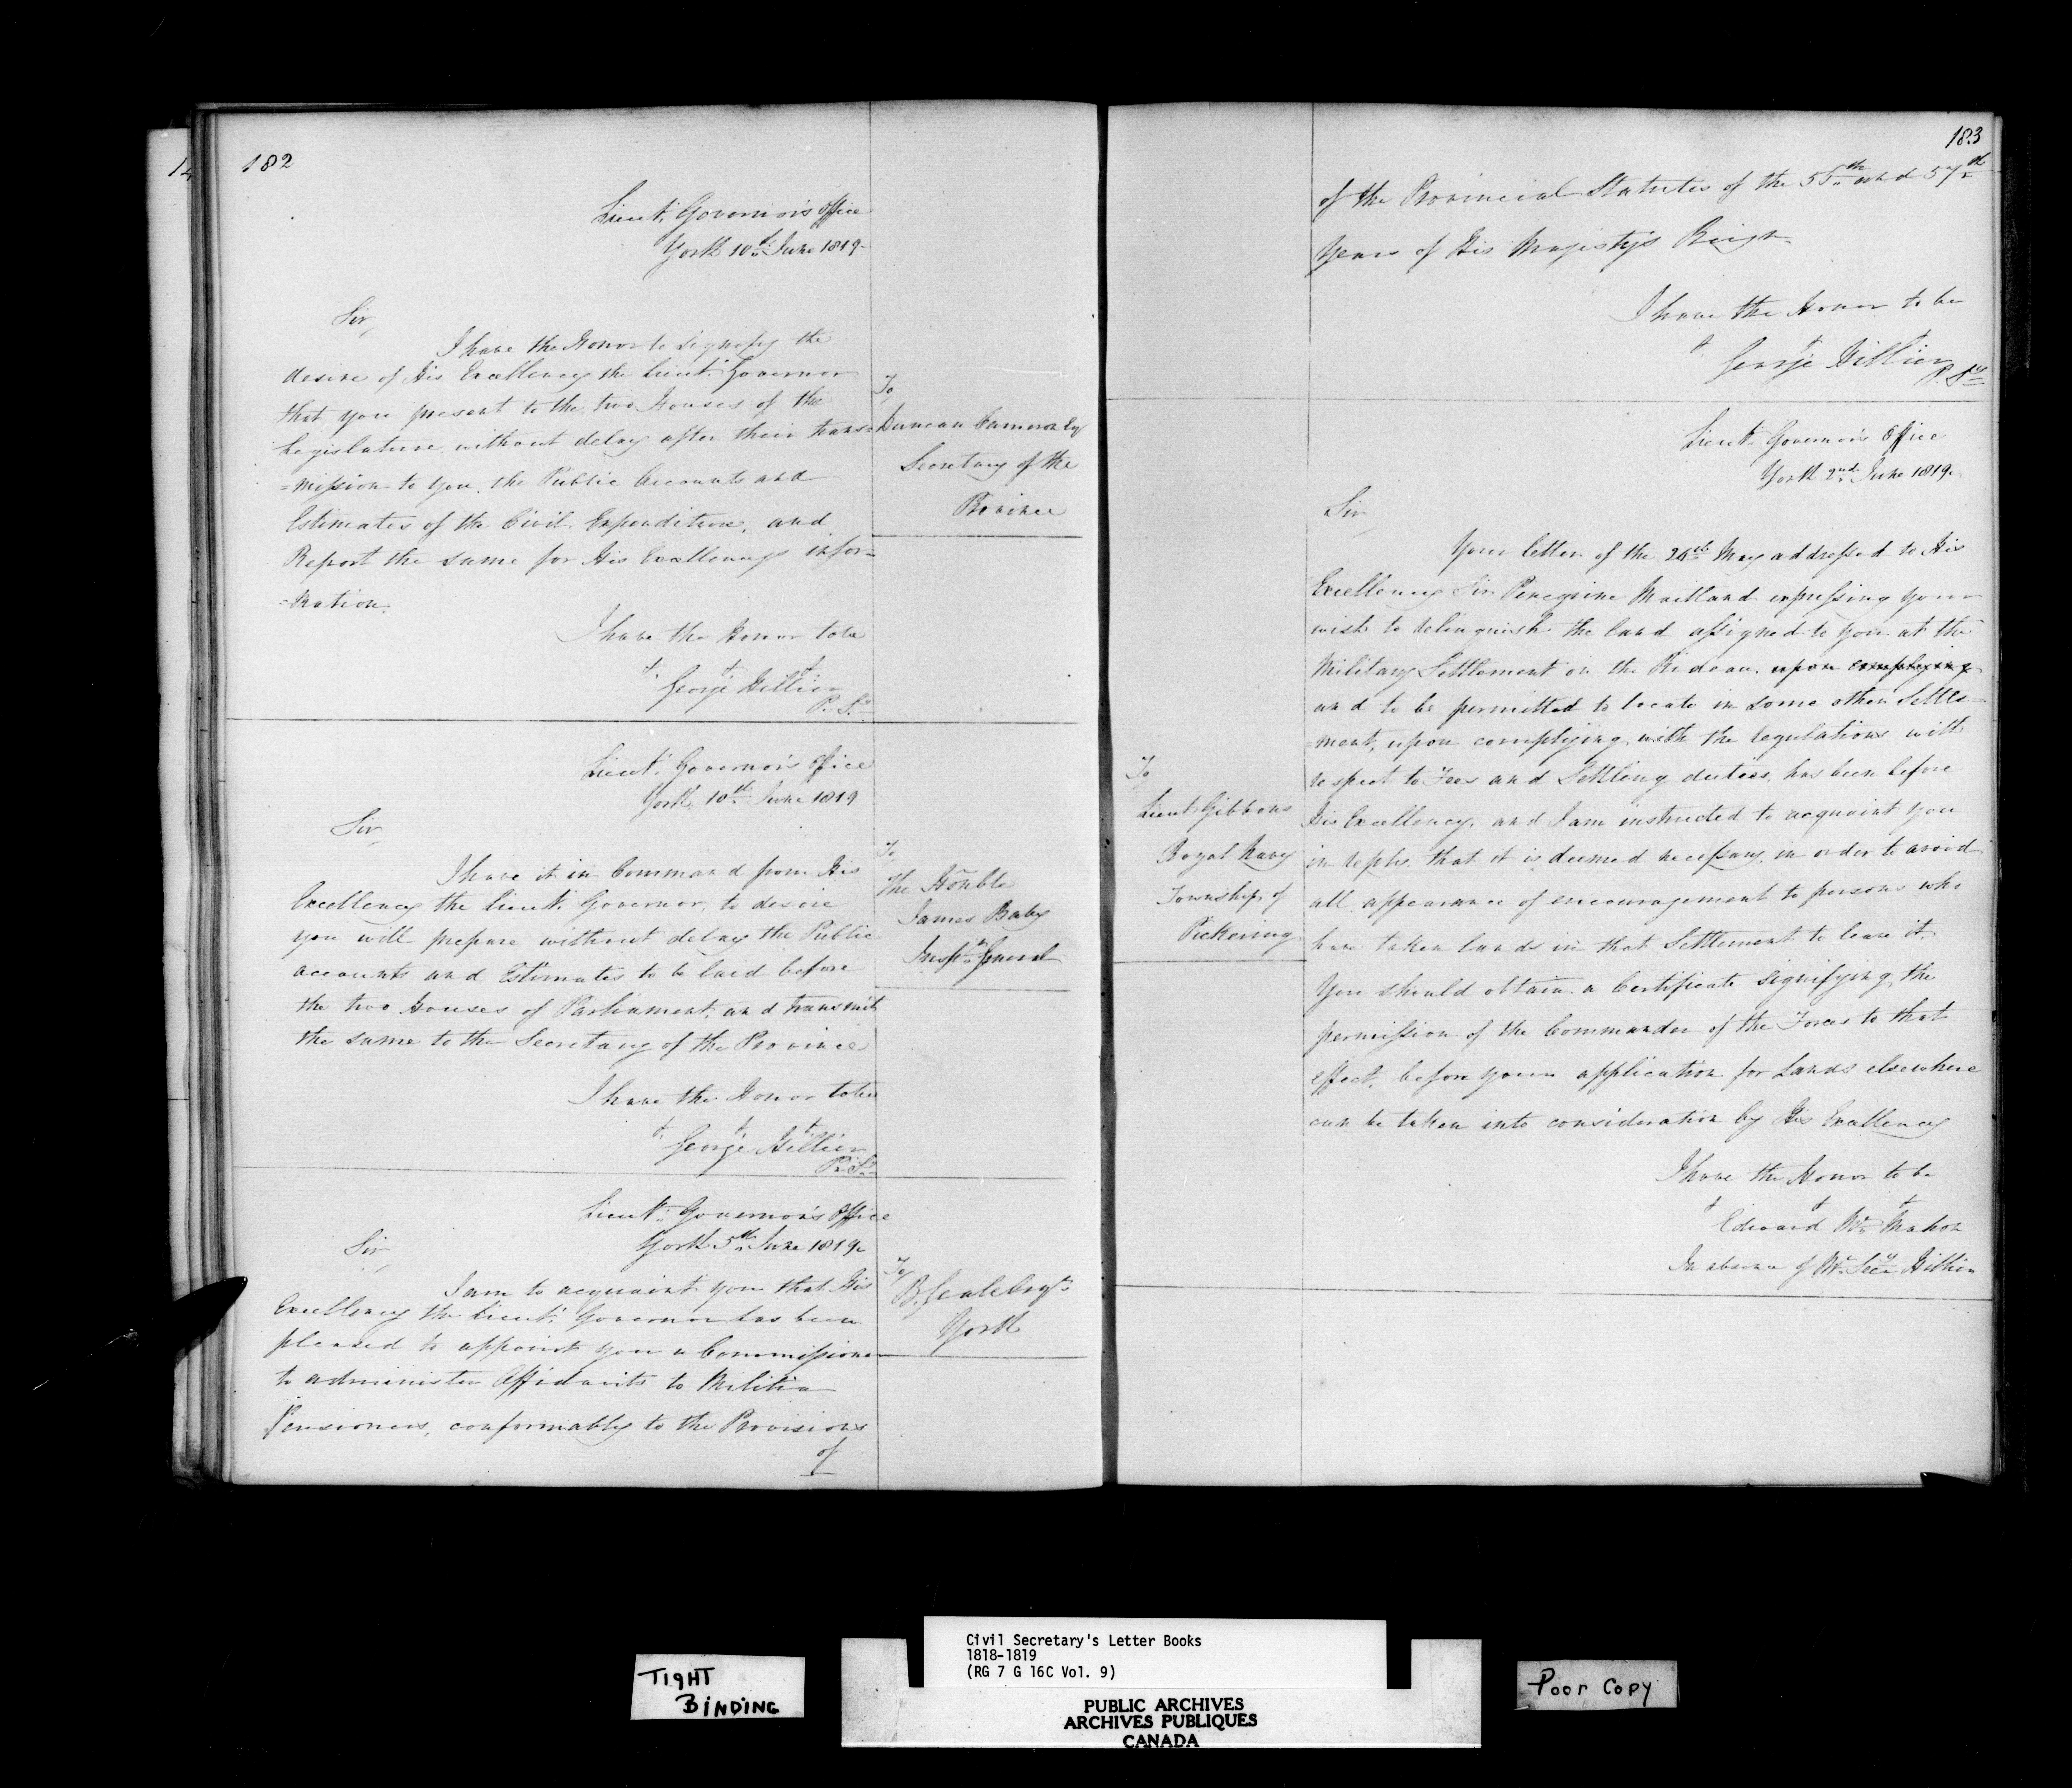 182
Lieut. Governor's Office
York 10th June 1819.
Sir,
I have the Honor to signify the
desire of His Excellency the Lieut. Governor
that you present to the two Houses of the
Legislature, without delay after their trans=
=mission to you, the Public Accounts and
Estimates of the Civil Expenditure, and
Report the same for His Excellency's infor=
=mation.
I have the Honor to be
George Hillier
P. Sy.
To
Duncan Cameron Esq
Secretary of the
Province
Lieut. Governor's Office
York 10th June 1819
Sir,
I have it in Command from His
Excellency the Lieut. Governor, to desire
you will prepare without delay the Public
accounts and Estimates to be laid before
the two Houses of Parliament, and transmit
the same to the Secretary of the Province
I have the Honor to be
George Hillier
P. Sy.
To
The Honble
James Baby
Inspr. General
Lieut. Governor's Office
York 5th June 1819.
Sir,
I am to acquaint you that His
Excellency the Lieut. Governor has been
pleased to appoint you a Commissioner
to administer Affidavits to Militia
Pensioners, conformably to the Provisions
of
To
B. Geale Esqr.
York
183
of the Provincial Statutes of the 55th and 57th
Years of His Majesty's Reign.
I have the Honor to be
George Hillier
P. Sy.
Lieut. Governor's Office
York 2nd June 1819.
Sir
Your letter of the 26th May addressed to His
Excellency Sir Peregrine Maitland expressing your
wish to relinquish the land assigned to you at the
Military Settlement on the Rideau. upon complying
and to be permitted to locate in some other Settle=
=ment, upon complying with the regulations with
respect to Fees and Settling duties, has been before
His Excellency, and I am instructed to acquaint you
in reply, that it is deemed necessary, in order to avoid
all appearance of encouragement to persons who
have taken lands in that Settlement to leave it.
You should obtain a Certificate signifying the
permission of the Commander of the Forces to that
effect, before your application for Lands elsewhere
can be taken into consideration by His Excellency
I have the Honor to be
Edward McMahon
In absence of Mr. Secy Hillier
To
Lieut. Gibbons
Royal Navy
Township of
Pickering
TIGHT
BINDING
Civil Secretary's Letter Books
1818-1819
(RG 7 G 16C Vol. 9)
PUBLIC ARCHIVES
ARCHIVES PUBLIQUES
CANADA
Poor Copy